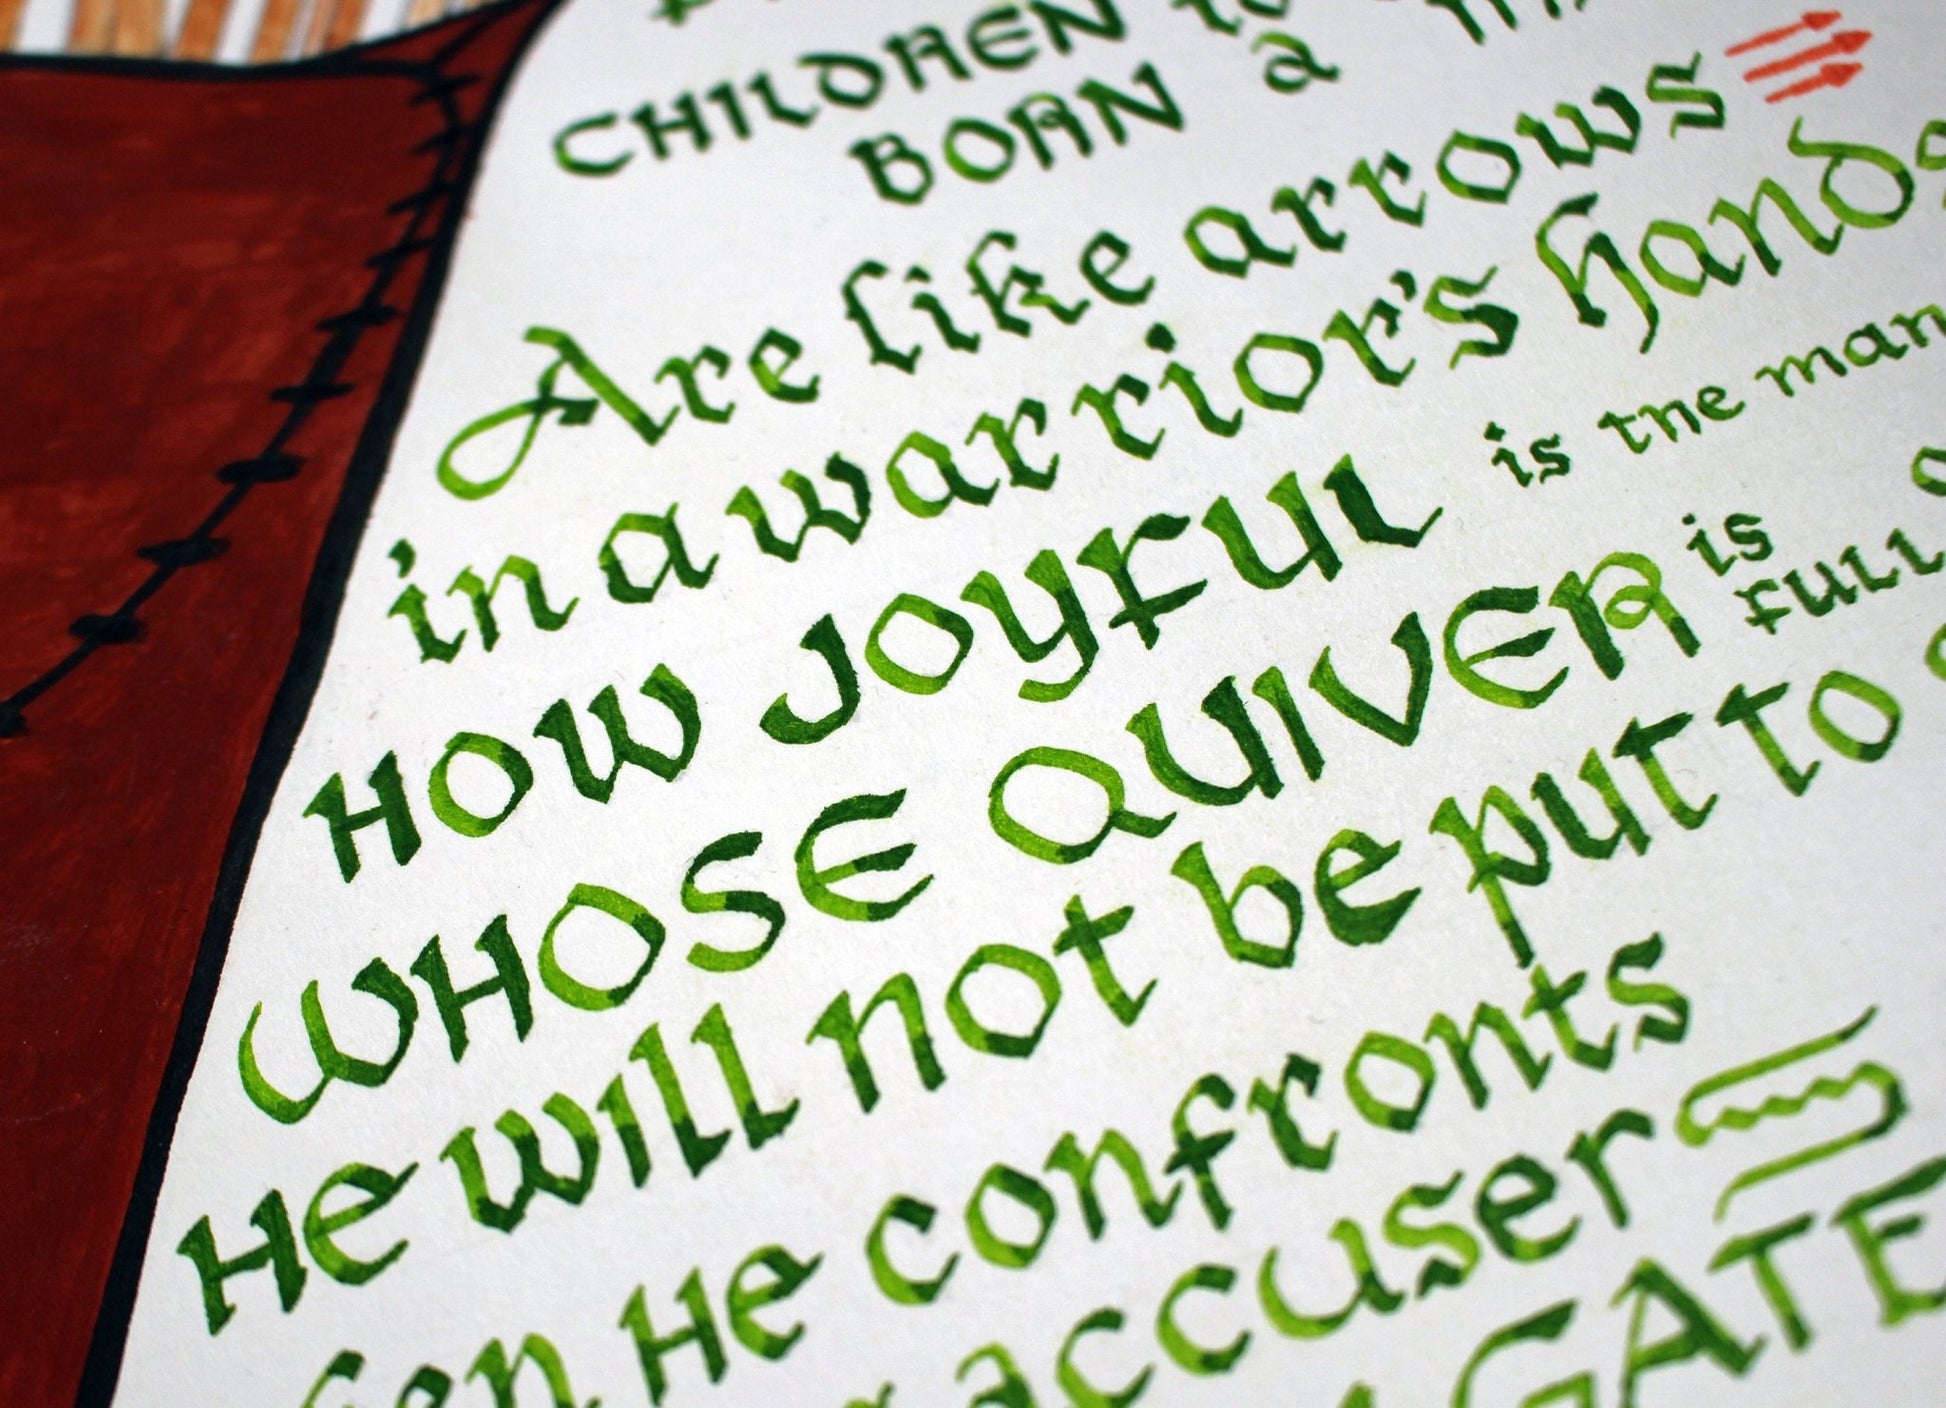 CHILDREN to
BORN a
Are like arrows
in a warrior's hands
HOW JOYFUL is the man
WHOSE QUIVER is
FULL
He will not be put to
He confronts
accuser
GATE